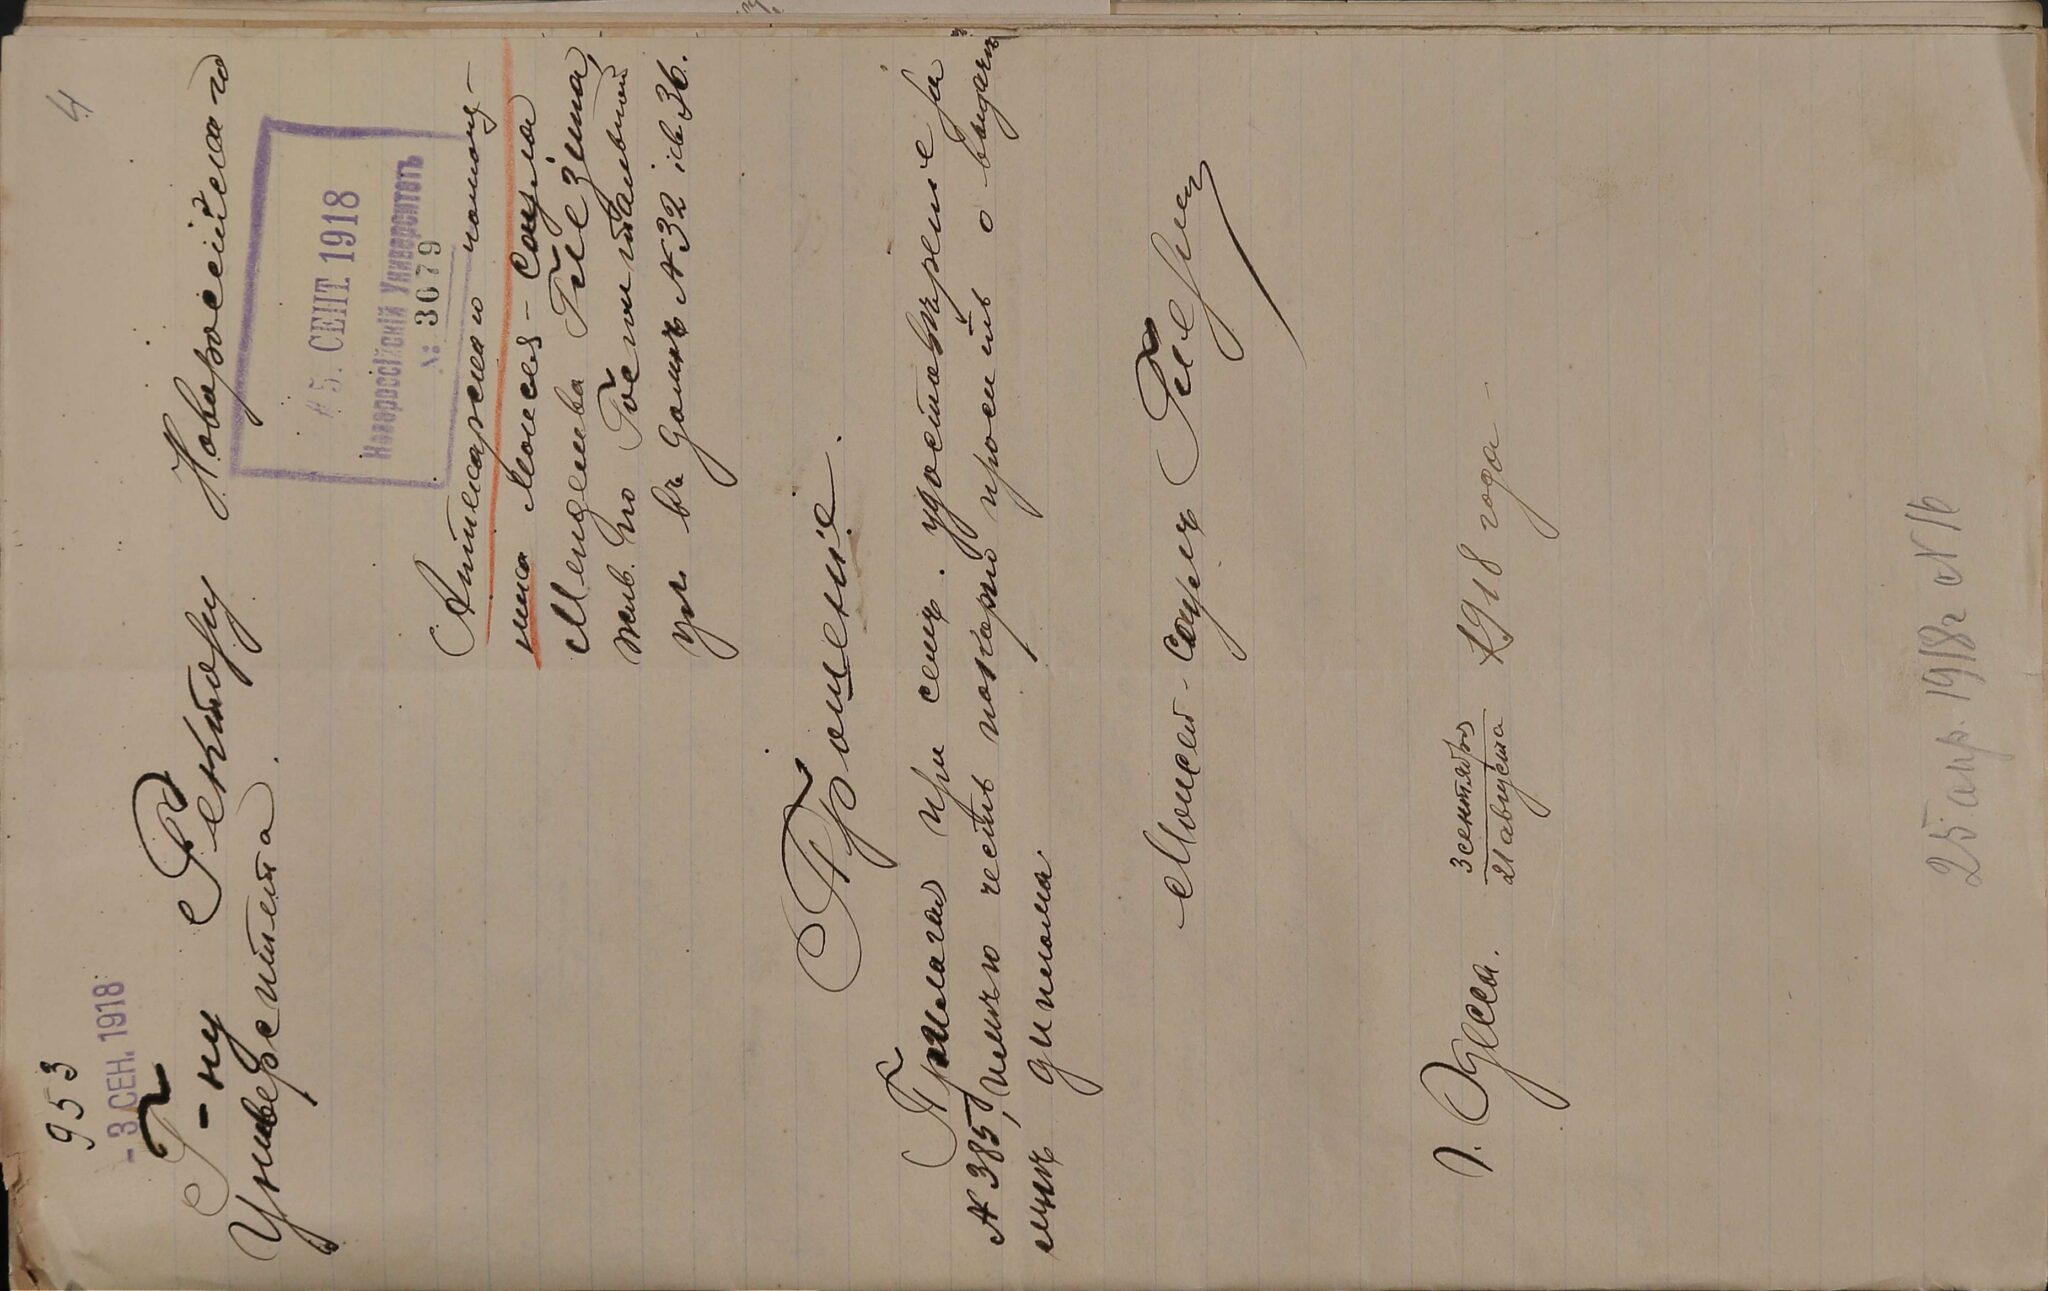 4
953
- 3 СЕН. 1918
Г-ну Ректору Новороссійскаго
Университета.
5. СЕНТ. 1918
Новороссійскій Университетъ
№ 3079
Аптекарскаго помощ-
ника Моисея-Сруля
Менделева Глезина,
жив. по Госпитальной
ул. въ домѣ № 32 кв 36.
Прошеніе.
Прилагая при семъ удостовѣреніе за
№ 385, имѣю честь покорно просить о выдачѣ
мнѣ диплома.
Моисей-Сруль Глезин
г. Одесса. 3 сентября
21 августа 1918 года
25 апр. 1918 г № 16